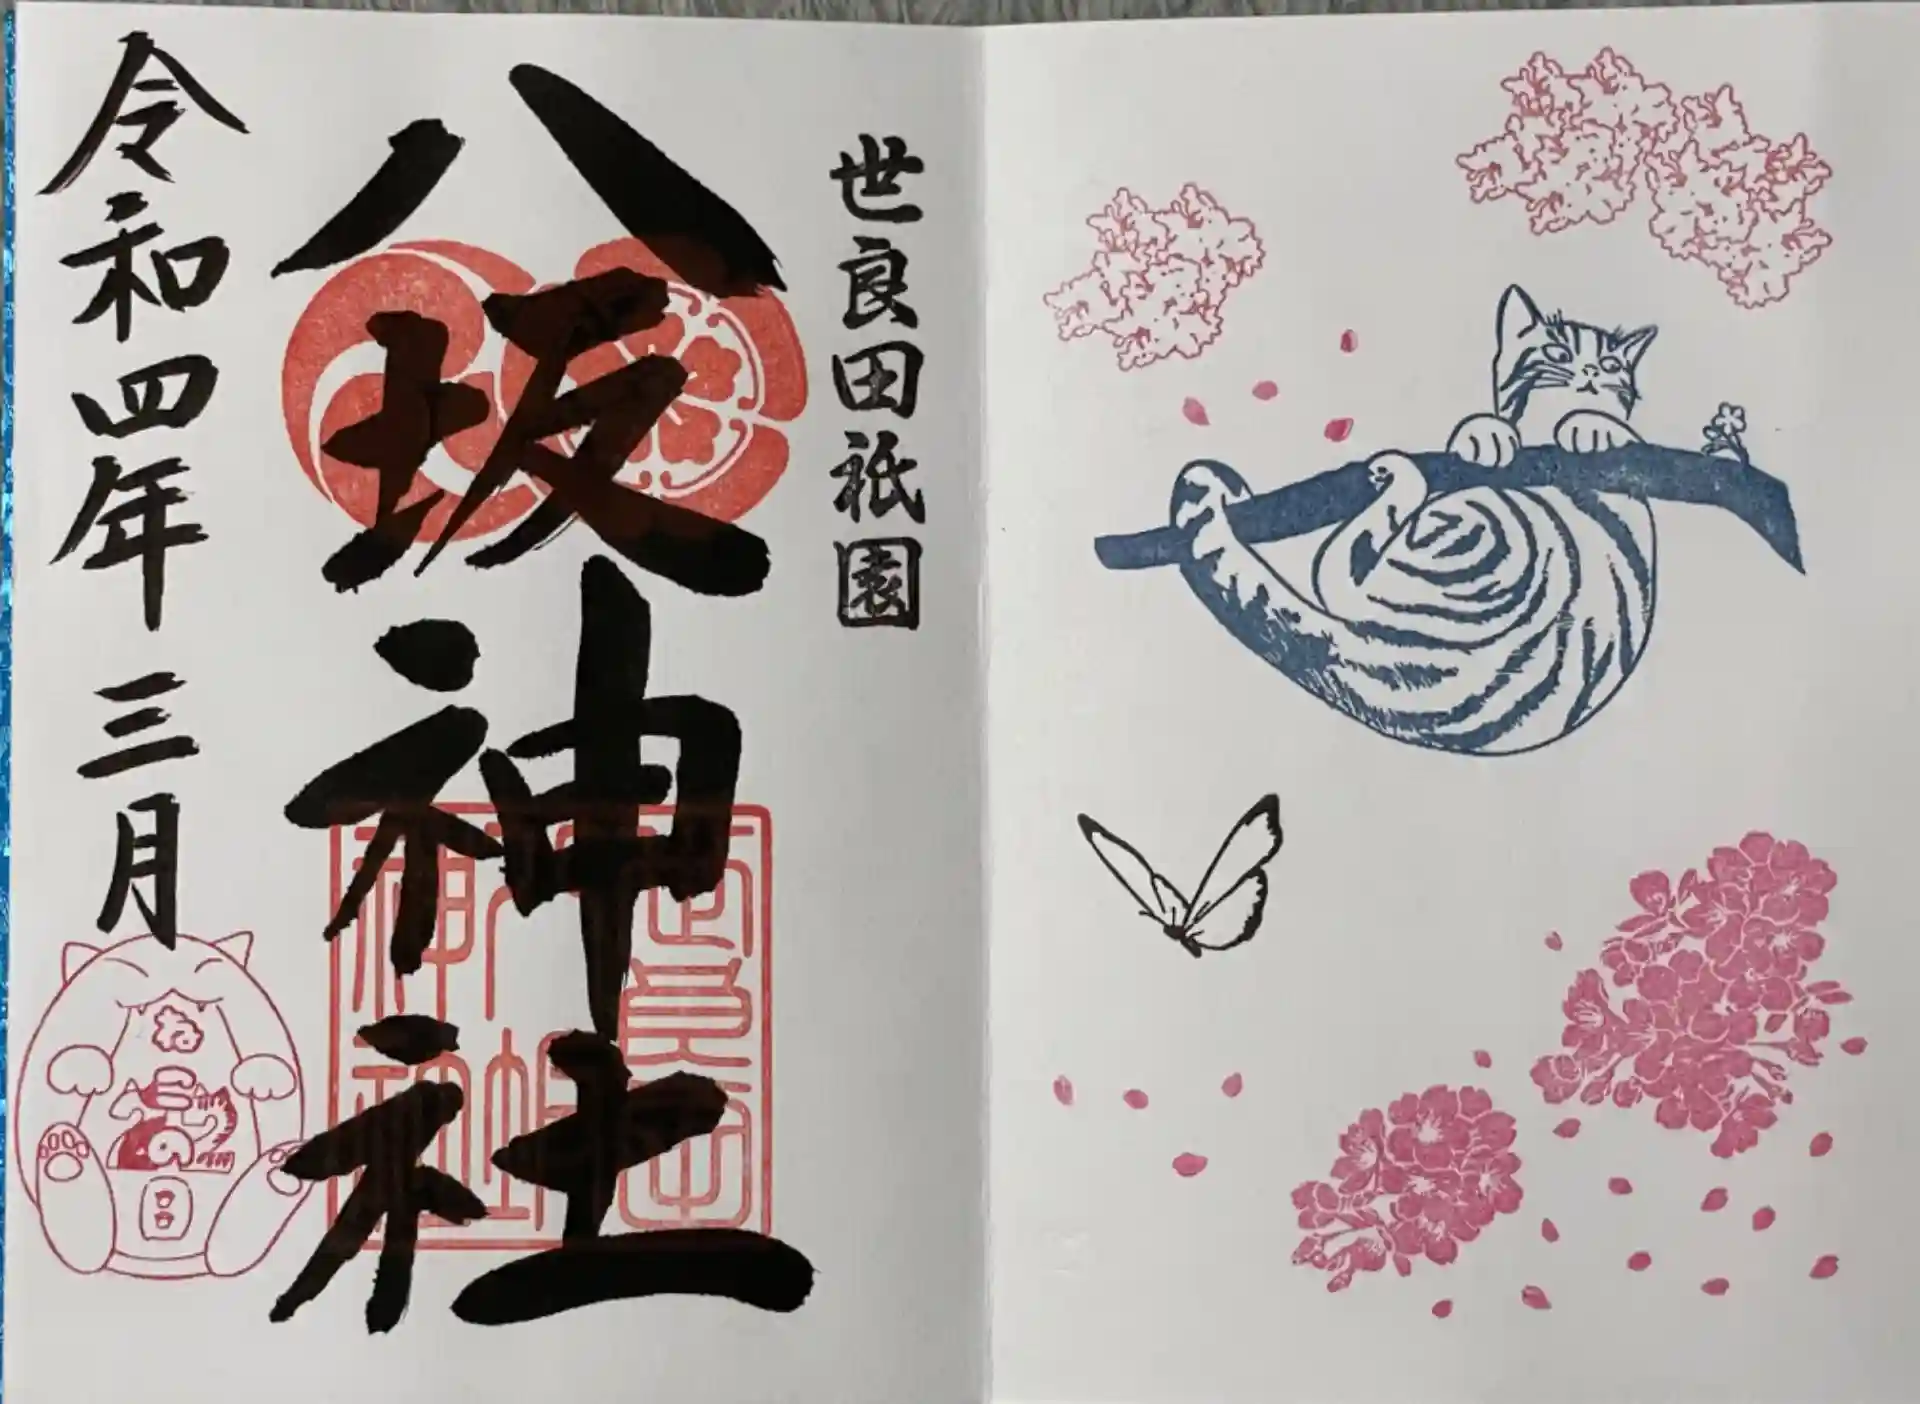 世良田祇園
八坂神社
令和四年三月
ね